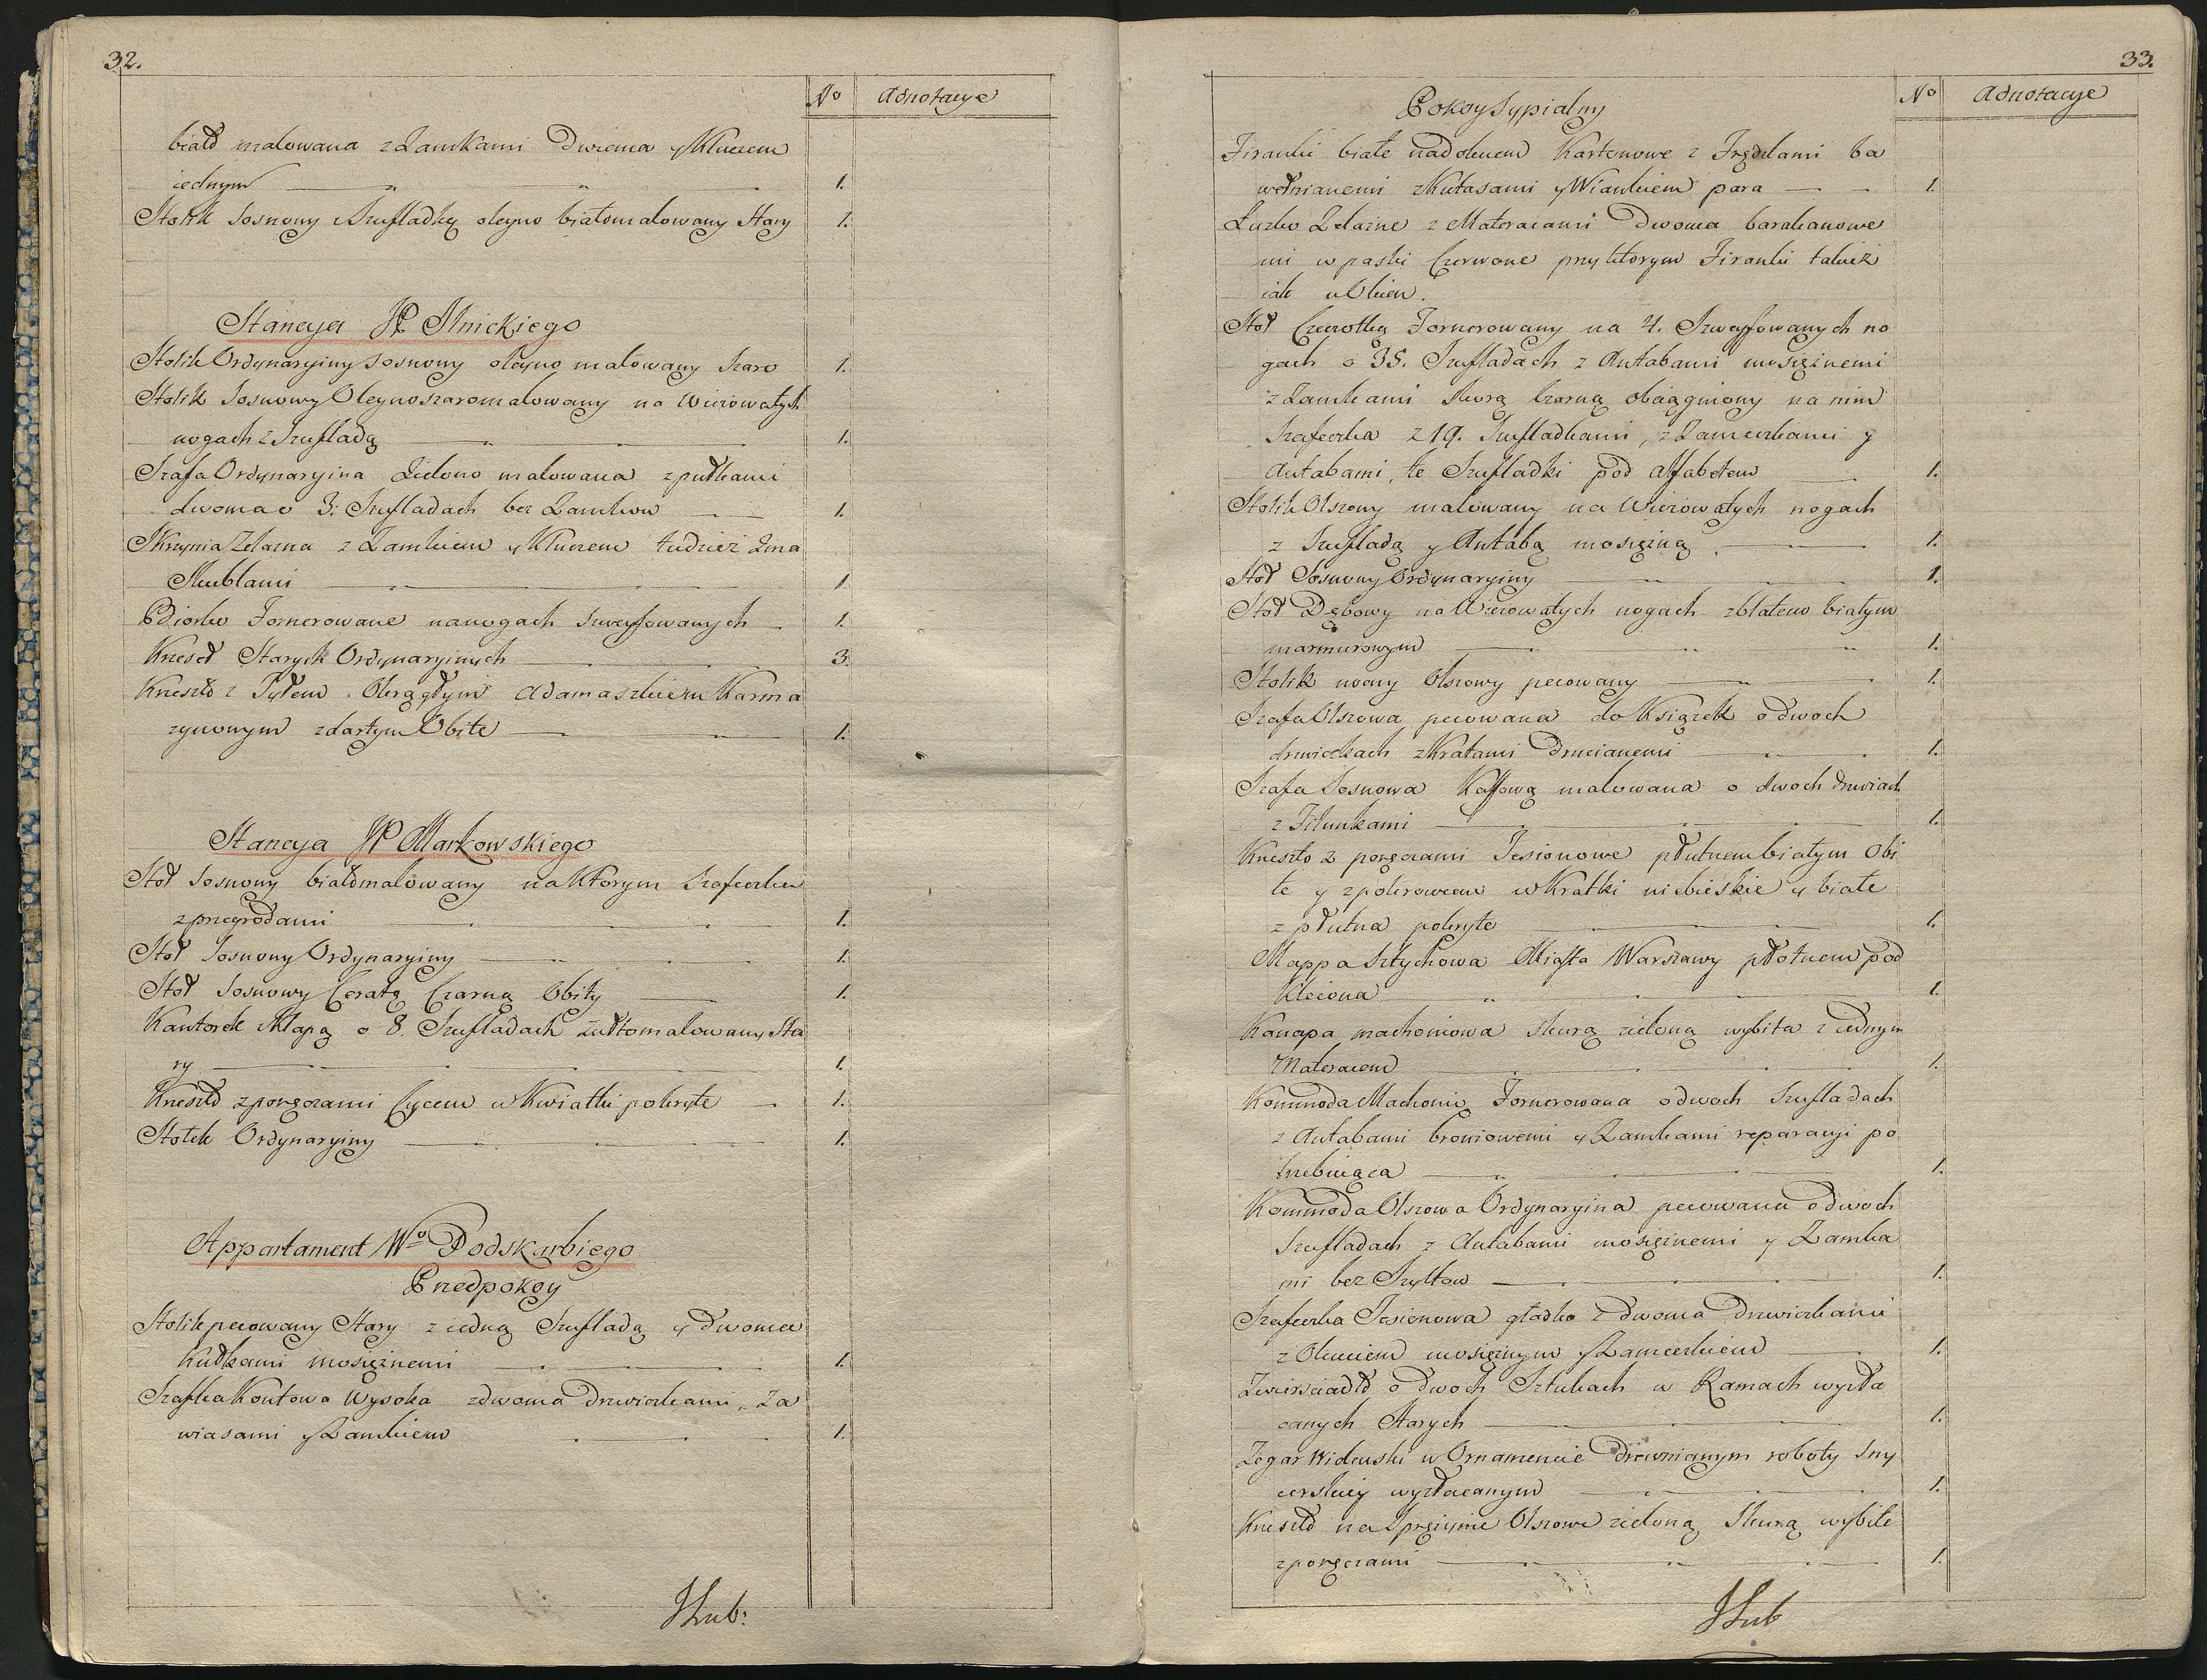 32.
No Adnotacye
biało malowana z Zamkami Dwiema y Kluczem
iednym 1.
Stolik Sosnony z Szufladką oleyno biało malowany Stary 1.
Stancya JP. Ilnickiego
Stolik Ordynaryiny Sosnony oleyno malowany szaro 1.
Stolik Sosnowy Oleyno szaro malowany na Wierowatych
nogach z Szufladą 1.
Szafa Ordynaryina Zielono malowana z pułkami
dwoma o 3. Szufladach bez Zamkow 1.
Skrzynia Żelazna z Zamkiem y Kluczem tudzież 2ma
Skublami 1
Biorko Fornerowane na nogach szweyfowanych 1.
Krzeseł Starych Ordynaryinych 3.
Krzesło z Tyłem Okrągłym adamaszkiem Karma
zynowym zdartym Obite 1.
Stancya JP Markowskiego
Stoł Sosnony biało malowany na Ktorym Szafeczka
z przegrodami 1.
Stoł Sosnony Ordynaryiny 1.
Stoł Sosnowy Ceratą Czarną Obity 1.
Kantorek Klapą o 8. Szufladach żułto malowany Sta
ry 1.
Krzesło z poręczami Cycem w Kwiatki pokryte 1.
Stołek Ordynaryiny 1.
Appartament Wo Podskarbiego
Przedpokoy
Stolik pecowany Stary z iedną Szufladą y dwoma
Kułkami mosiężnemi 1.
Szafka Kontowa Wysoka z dwoma Drzwiczkami, Za
wiasami y Zamkiem 1.
JLub:
33.
No Adnotacye
Pokoy Sypialny
Firanki białe nad oknem Kartonowe z Frędzlami ba
wełnianemi z Kutasami y Wiankiem para 1.
Łuzko Żelazne z Materacami Dwoma barakanowe
mi w paski Czerwone przy ktorym Firanki takież
iak u Okien.
Stoł Czeczotką Fornerowany na 4. Szweyfowanych no
gach o 35. Szufladach z Antabami mosiężnemi
z Zamkami Skorą Czarną obciągniony na nim
Szafeczka z 19. Szufladkami, z Zameczkami y
Antabami, te Szufladki pod Alfabetem 1.
Stolik Olszony malowany na Wierowatych nogach
z Szufladą y Antabą mosiężną 1.
Stoł Sosnony Ordynaryiny 1.
Stoł Dębowy na Wierowatych nogach z blatem białym
marmurowym 1.
Stolik nowy Olszowy pecowany 1.
Szafa Olszowa pecowana do Książek o dwoch
drzwiczkach z Kratami Drucianemi 1.
Szafa Sosnowa Kaffową malowana o dwoch drzwiach
z Filunkami 1.
Krzesło z poręczami Jesionowe płutnem białym Obi
te y z pokrowcem w Kratki niebieskie y białe
z płutna pokryte 1.
Mappa Sztychowa Miasta Warszawy płotnem pod
kleiona 1.
Kanapa machoniowa skurą zieloną wybita z iednym
Materacem 1.
Kommoda Machonią Fornerowana o dwoch Szufladach
z Antabami bronzowemi y Zamkami reparacyi po
trzebuiąca 1.
Kommoda Olszowa Ordynaryina pecowana o dwoch
Szufladach z Antabami mosiężnemi y Zamka
mi bez Szyltow 1.
Szafeczka Jesionowa gładka z dwoma Drzwiczkami
z Okuciem mosiężnym y Zameczkiem 1.
Zwierściadło o dwoch Sztukach w Ramach wyzła
canych Starych 1.
Zegar Widenski w Ornamencie Drewnianym roboty Sny
cerskiey wyzłacanym 1.
Krzesło na Sprężynie Olszowe zieloną Skurą wybite
z poręczami 1.
JLub